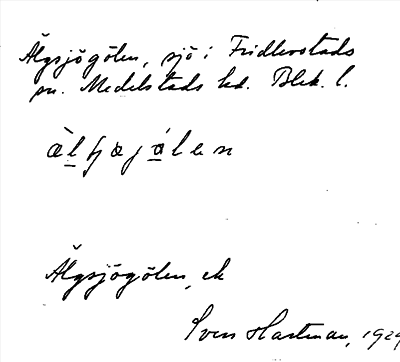 Älgsjögölen, sjö i Fridlevstads
sn. Medelstads hd. Blek. l.
Älgsjögölen, ek
Sven Hartman, 1929